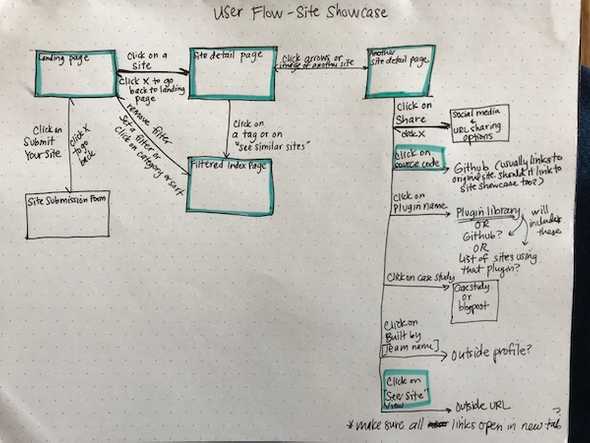 User Flow - Site Showcase
Landing page
Click on a
Site
Click X to go
back to landing
page
Site detail page
Click arrows or
image of another site
Another
site detail page
Click on
Submit
Your Site
Click X
to go
back
remove filter
Set a filter or
Click on category or sort
Click on
a tag or on
"see similar sites"
Site Submission Form
Filtered Index Page
Click on
Share
click X
Social media
&
URL sharing
options
Click on
source code
Github (usually links to
original site. should it link to
site showcase too?)
Click on
Plugin name
Plugin library
OR
Github?
OR
List of sites using
that plugin?
will
include
these
Click on case study
Case study
or
blogpost
Click on
Built by
[Team name]
outside profile?
Click on
"See Site"
view
outside URL
*make sure all links open in new tab